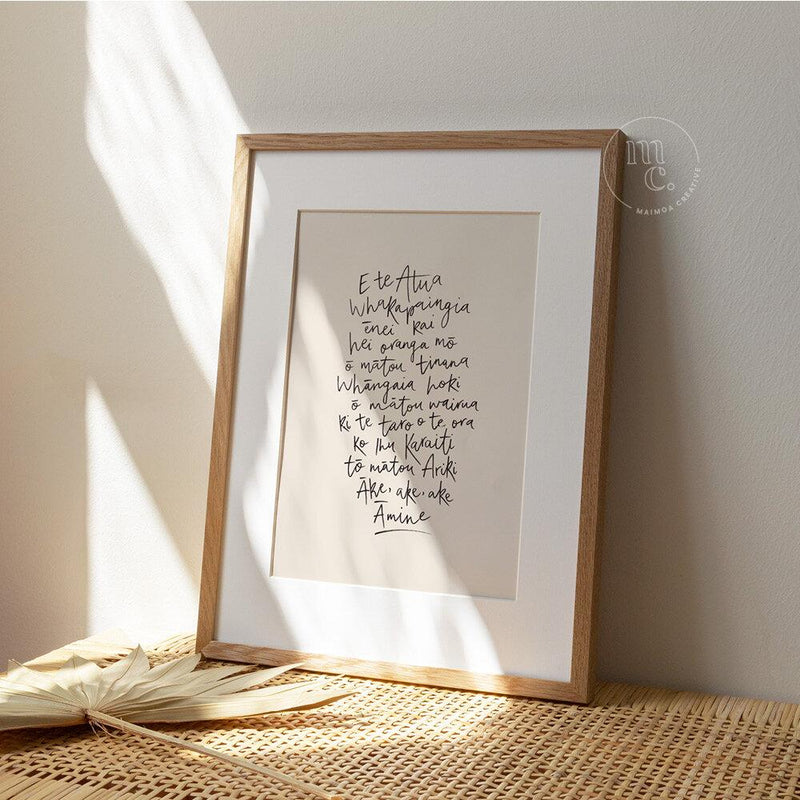 E te Atua
Whakapaingia
ēnei kai
hei oranga mō
ō mātou tinana
Whāngaia hoki
ō mātou wairua
ki te taro o te ora
ko Ihu Karaiti
tō mātou Ariki
Āke, ake, ake
Āmine
mc
MAIMOA CREATIVE